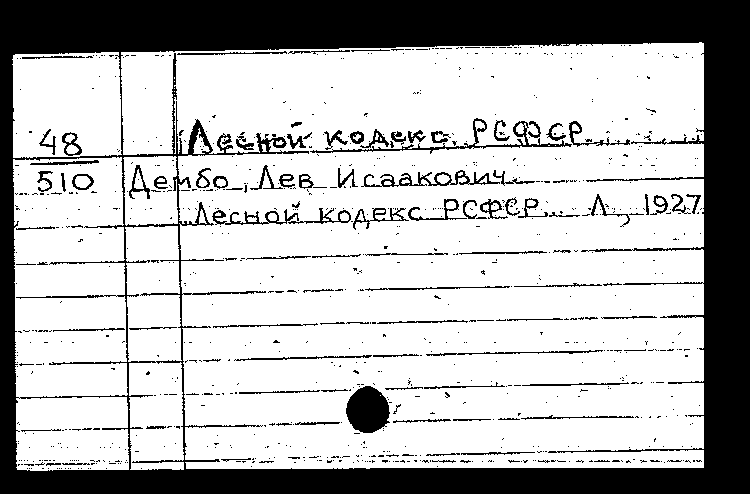 Лесной кодекс РСФСР....
48
510
Дембо, Лев Исаакович.
Лесной кодекс РСФСР... Л., 1927